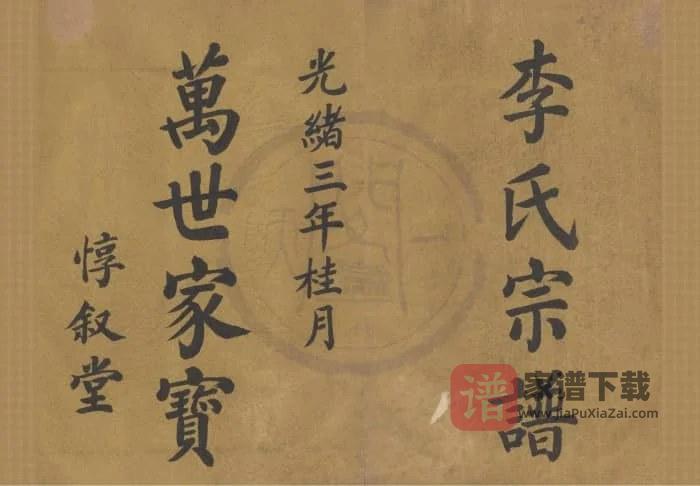 李氏宗譜
光緒三年桂月
萬世家寶
惇叙堂
谱
家谱下载
www.JiaPuXiaZai.com